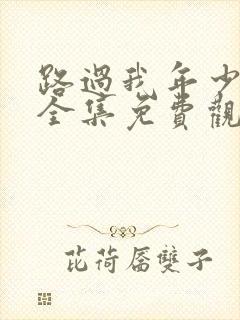 路過我年少
全集免費觀
芘荷羼雙子